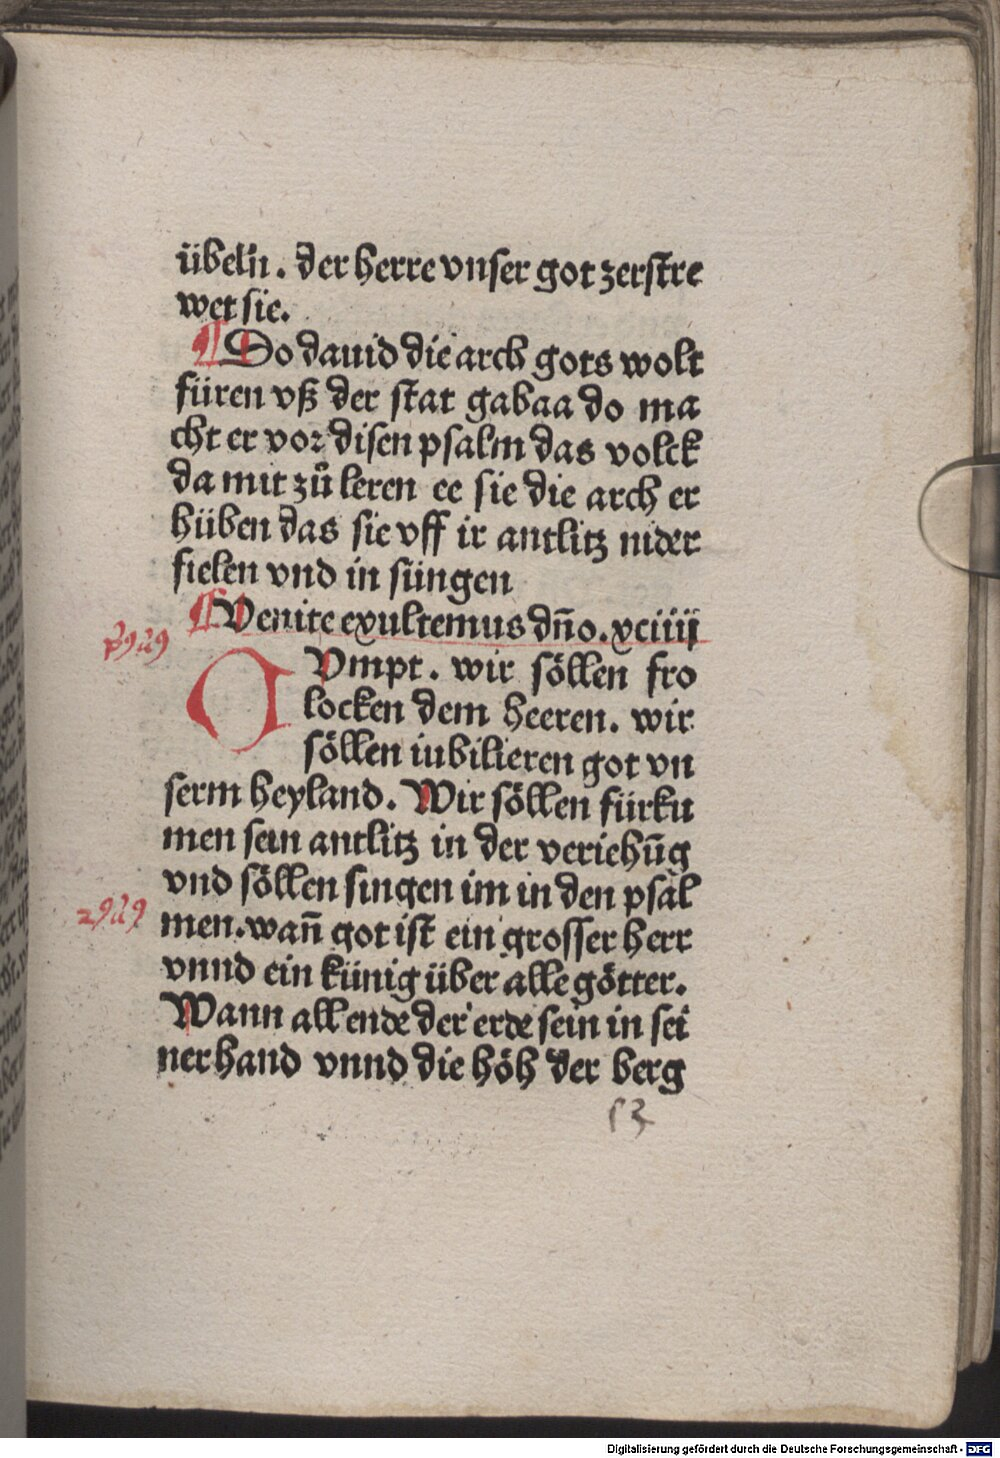 übeln. der herre vnser got zerstre
wet sie.
¶ Do dauid die arch gots wolt
füren vß der stat gabaa do ma
cht er vor disen psalm das volck
da mit zů leren ee sie die arch er
hüben das sie vff ir antlitz nider
fielen vnd in süngen
¶ Venite exultemus dño. xciiij
C Vmpt. wir söllen fro
locken dem heeren. wir
söllen iubilieren got vn
serm heyland. Wir söllen fürku
men sein antlitz in der veriehūg
vnd söllen singen im in den psal
men. wañ got ist ein grosser herr
vnnd ein künig über alle götter.
Wann all ende der erde sein in sei
ner hand vnnd die höh der berg
53
Digitalisierung gefördert durch die Deutsche Forschungsgemeinschaft - DFG